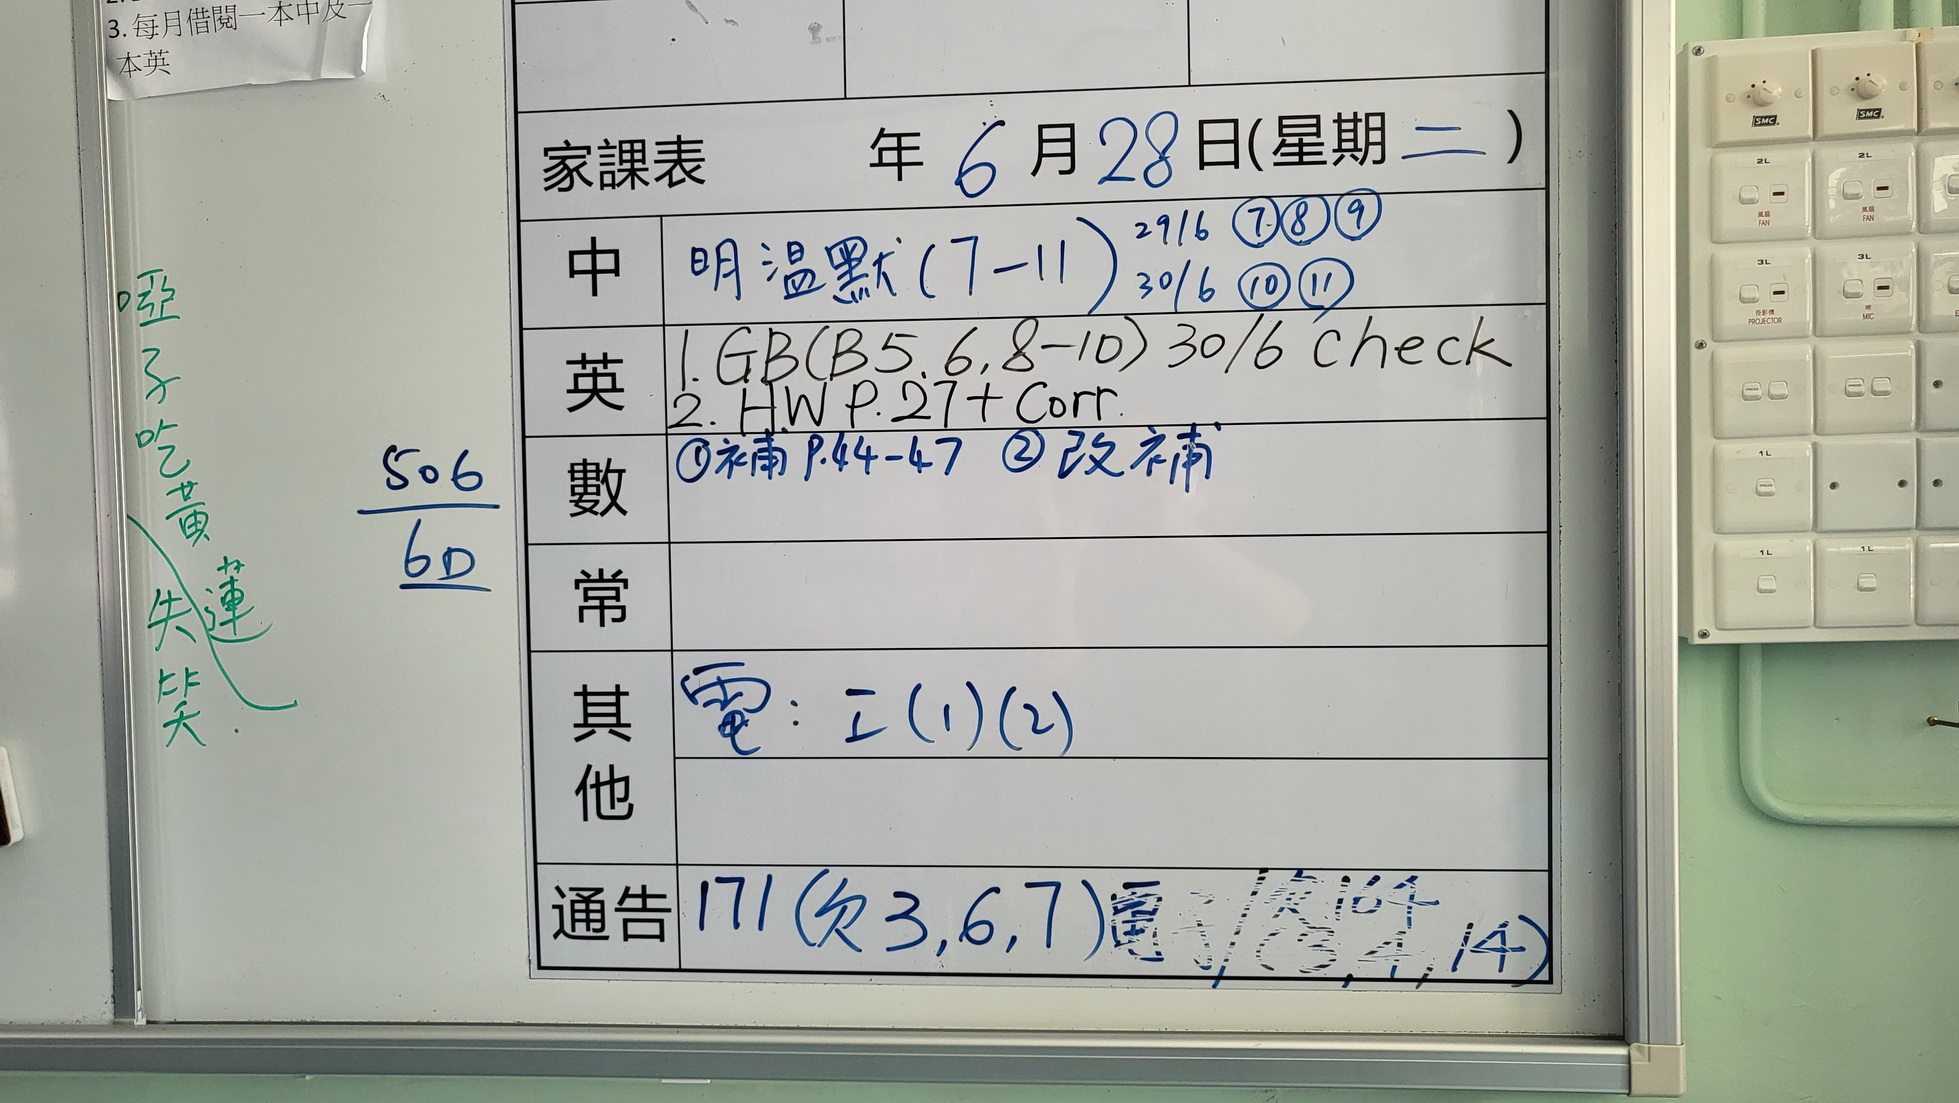 3. 每月借閱一本中及一
本英
家課表 年 6 月 28 日(星期 二 )
中 明溫默(7-11) 29/6 ⑦⑧⑨
30/6 ⑩⑪
英 1. GB(B5, 6, 8-10) 30/6 check
2. HW P.27 + Corr.
數 ①補 P.44-47 ②改補
常
其他 電: 工(1)(2)
通告 171 (欠3,6,7)
14)
啞子吃黃蓮
失笑.
506
6D
SMC
SMC
2L
風扇
FAN
2L
風扇
FAN
3L
投影機
PROJECTOR
3L
咪
MIC
1L
1L
1L